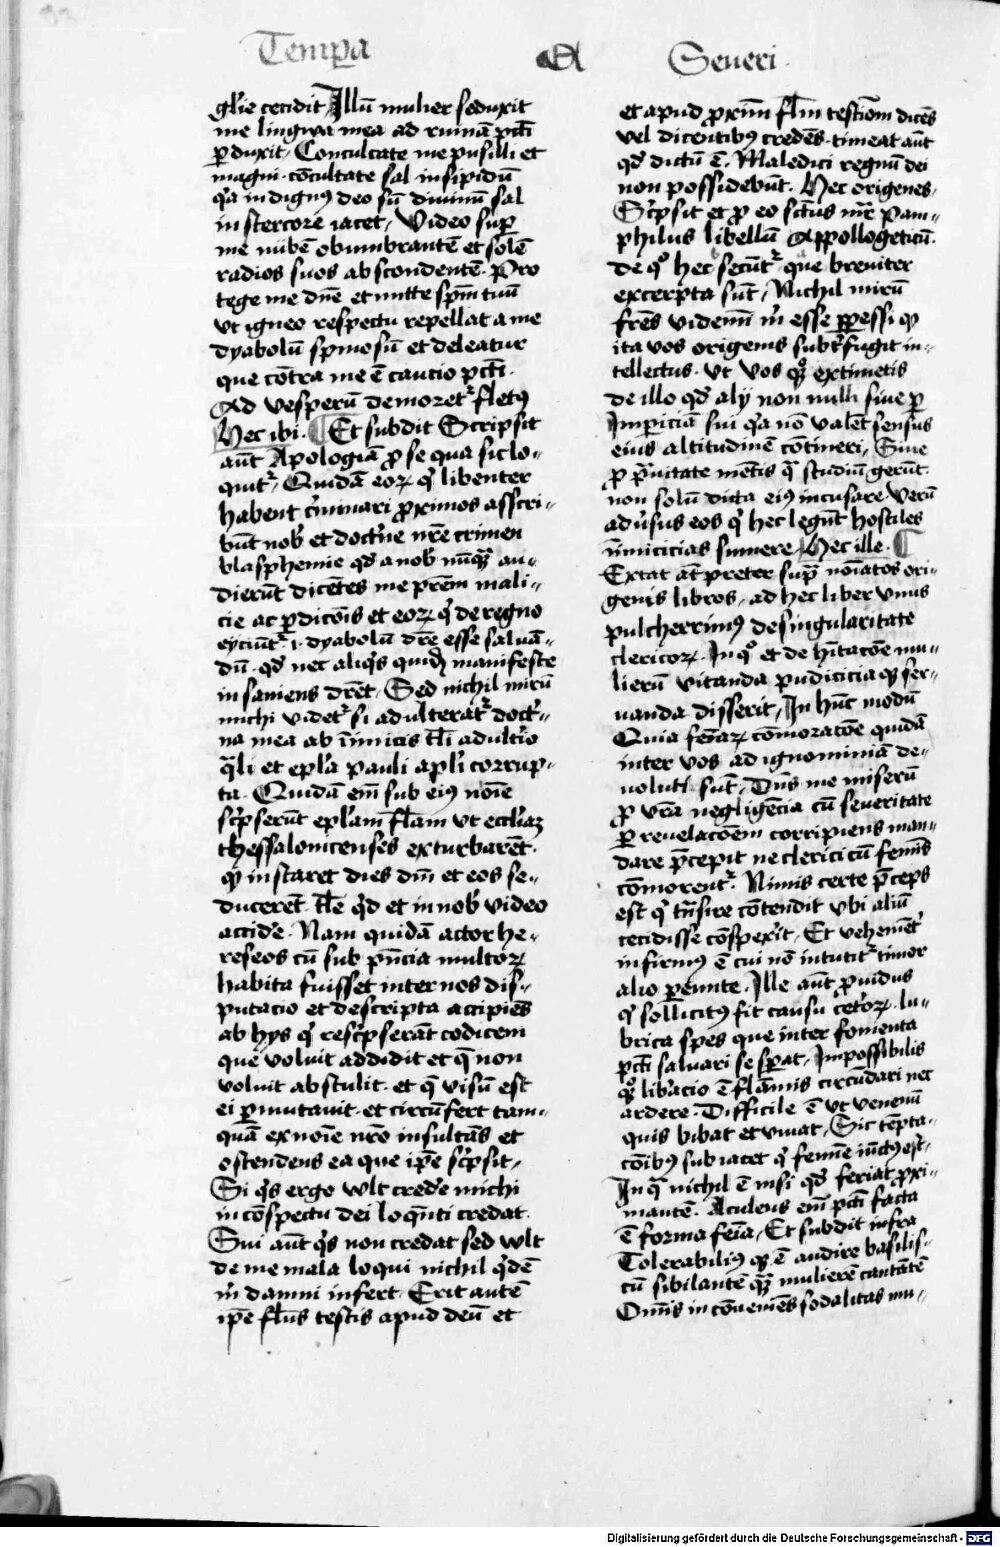 Tempa A Seueri
gl'ie cecidit Illū mulier seduxit
me lingwa mea ad ruinā pcti
ꝑduxit Conculcate me pusilli et
magni cōcultate sal insipidū
q'a indignꝰ deo sū diuinū sal
in stercore iacet Video suꝑ
me nubē obumbrantē et solē
radios suos abscondentē Pro
tege me dn̄e et mitte sp̄m tuū
vt igneo respectu repellat a me
dyabolū spinosū et deleatur
que cōtra me ē caucio pcti
Ad vesperū demoret' fletꝰ
Hec ibi Et subdit Scripsit
aūt Apologiā ꝓ se qua sic lo-
quit' Quidā eoꝝ q' libenter
habent c'minari ꝓximos asscri-
būt nob' et doct'ne nr̄e crimen
blasphemie qd' a nob' nūqꝫ au-
dierūt dicētes me pr̄em mali-
cie ac ꝑdicōis et eoꝝ q' de regno
eyciūt' .i. dyabolū dr̄e esse saluā-
dū qd' nec aliq's quidē manifeste
insaniens dr̄et Sed nichil mirū
michi videt' si adulterat' doct'-
na mea ab īimicis tl̄i adult'io
q̄li et epl'a pauli apl'i corrup-
ta Quidā em̄ sub eiꝰ noīe
sc'pserūt epl'am fl̄am vt eccl'iaꝫ
thessalonicenses exturbarēt
qꝫ instaret dies dn̄i et eos se-
ducerēt tl̄e qd' et in nob' video
accid'e Nam quidā actor he-
reseos cū sub pn̄cia multoꝝ
habita fuisset inter nos dis-
putacio et descripta accipiēs
ab hys q' resc'pserāt codicem
que voluit addidit et q̄ non
voluit abstulit et q̄ visū est
ei ꝑmutauit et circūfert tam-
quā ex noīe nr̄o insultās et
ostendens ea que ip̄e sc'psit
Si q's ergo wlt cred'e michi
in cōspectu dei loq̄nti credat
Sui aūt q's non credat sed wlt
de me mala loqui nichil q'dē
m̄ damni infert Erit autē
ip̄e fl̄us testis apud deū et
et apud ꝓximū fl̄m testīom dicēs
vel dicentibꝰ credēs timeat aūt
qd' dictū ē Maledici regnū dei
non possidebūt Hec origenes
Sc'psit et ꝓ eo sct̄us mr̄ Pam-
philus libellū Appollogeticū
de q° hec secūt' que breuiter
excerpta sūt Nichil mirū
fr̄es videmī m̄ esse ꝑpessi qꝫ
ita vos origenis subt'fugit in-
tellectus vt vos qꝫ extimetis
de illo qd' alij non nulli siue ꝑ
Imꝑiciā sui q'a nō valēt sensus
eius altitudinē cōtineri Siue
ꝓ p̄uitate mētis q̄ studiū gerūt
non solū dicta eiꝰ incusare verū
adu'sus eos q' hec legūt hostiles
inimicicias sumere Hec ille
Extat at̄ preter sup̄ noīatos ori-
genis libros ad hec liber vnus
pulcherrimꝰ de singularitate
clericoꝝ In q° et de h'itacōe mu-
lierū vitanda pudiciciaqꝫ ser-
uanda disserit In hūc modū
Quia feīaꝝ cōmoracōe quidā
inter vos ad ignominiā de-
uoluti sūt Dn̄s me miserū
ꝓ vr̄a negligēcia cū seueritate
ꝑ reuelacōem corripiens man-
dare p̄cepit ne clerici cū femīs
cōmorent' Nimis certe p̄ceps
est q' tn̄sire cōtendit vbi aliū
cecidisse cōspex'it Et vehemēt'
infirmꝰ ē cui nō intutit' timor
alio ꝑeunte Ille aūt ꝓuidus
q' sollicitꝰ fit causu cet'oꝝ lu-
brica spes que inter fomenta
pcti saluari se sꝑat Impossibilis
qꝫ lib'acio ē flāmis circūdari nec
ardere Difficile ē vt venenū
quis bibat et viuat Sic tēpta-
cōibꝰ subiacet q' femīe iūctꝰ est
In q̄ nichil ē nisi qd' feriat ꝓxi-
mantē Aculeus em̄ pcti facta
ē forma feīa Et subdit infra
Tolerabiliꝰ qꝫ ē audire basilis-
cū sibilantē qꝫ mulierē cantātē
Om̄is incōueniēs sodalitas mu-
Digitalisierung gefördert durch die Deutsche Forschungsgemeinschaft - DFG